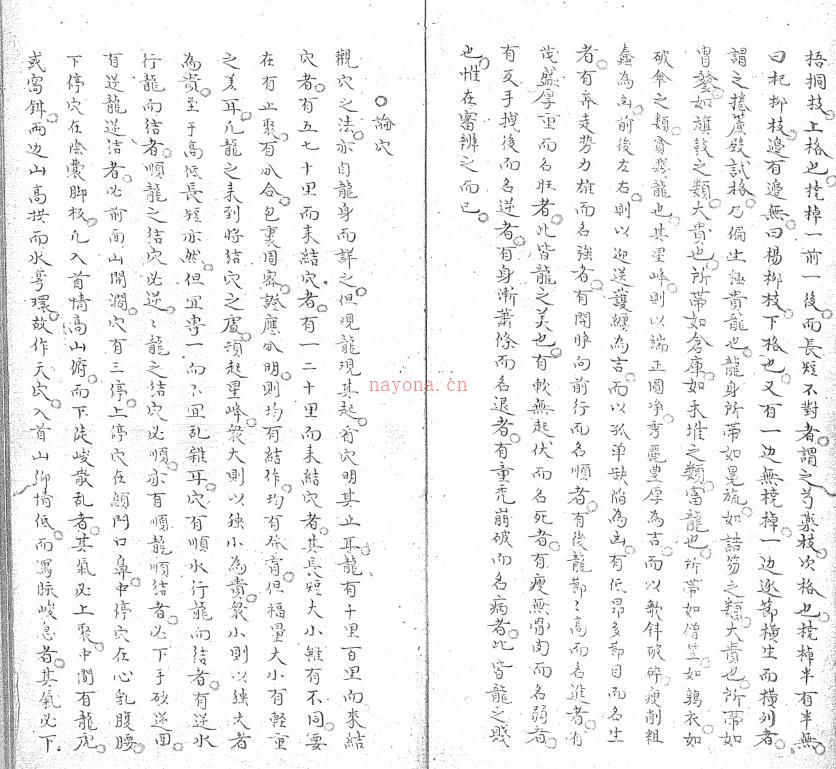 梧桐枝上格也桡棹一前一後而長短不對者謂之芍藥枝次格也桡棹半有半無
曰杞柳枝邊有邊無曰楊柳枝下格也又有一边無桡棹一边逐節横生而横列者
謂之捲簾殿試格乃偏生極貴龍也龍身所蒂如旻旒如誥笏之類大貴也所蒂如
冑盔如旗鼓之類大貴也所蒂如倉庫如禾堆之類富龍也所蒂如僧笠如鶉衣如
破傘之類貧賤龍也其星峰則以端正圓净秀麗豊厚為吉而以欹斜破碎瘦削粗
蠢為凶前後左右則以迎送護纏為吉而以孤单缺陷為凶有低昂多節目而名生
者有奔走势力雄而名強者有開睁向前行而名順者有後龍節々高而名進者有
茂盛厚重而名旺者此皆龍之美也有軟無起伏而名死者有瘦無骨肉而名弱者
有反手拽後而名逆者有身漸蕭條而名退者有重禿崩破而名病者此皆龍之賤
也惟在審辨之而已
論穴
觀穴之法亦自龍身而詳之但观龍观其起看穴明其止耳龍有千里百里而來結
穴者有五七十里而来結穴者有一二十里而来結穴者其長短大小雖有不同要
在有止聚有分合包裏周密朝應分明則均有結作均有發育但福量大小有輕重
之差耳凡龍之来到將結穴之處頊起星峰衆大則以独小為貴衆小則以独大者
為貴至于高低長短亦然但宜專一而不宜乱雜耳穴有順水行龍而結者有逆水
行龍而結者順龍之結穴必逆々龍之結穴必順亦有順龍順結者必下手砂逆囬
有逆龍逆结者必前面山開濶穴有三停上停穴在顖門口鼻中停穴在心乳腹腰
下停穴在陰囊脚枝凡入首情高山俯而下徒峻散乱者其氣必上聚中間有龍虎
或窩鉗两边山高拱而水弯環故作天穴入首山仰情低而瀉脉峻急者其氣必下